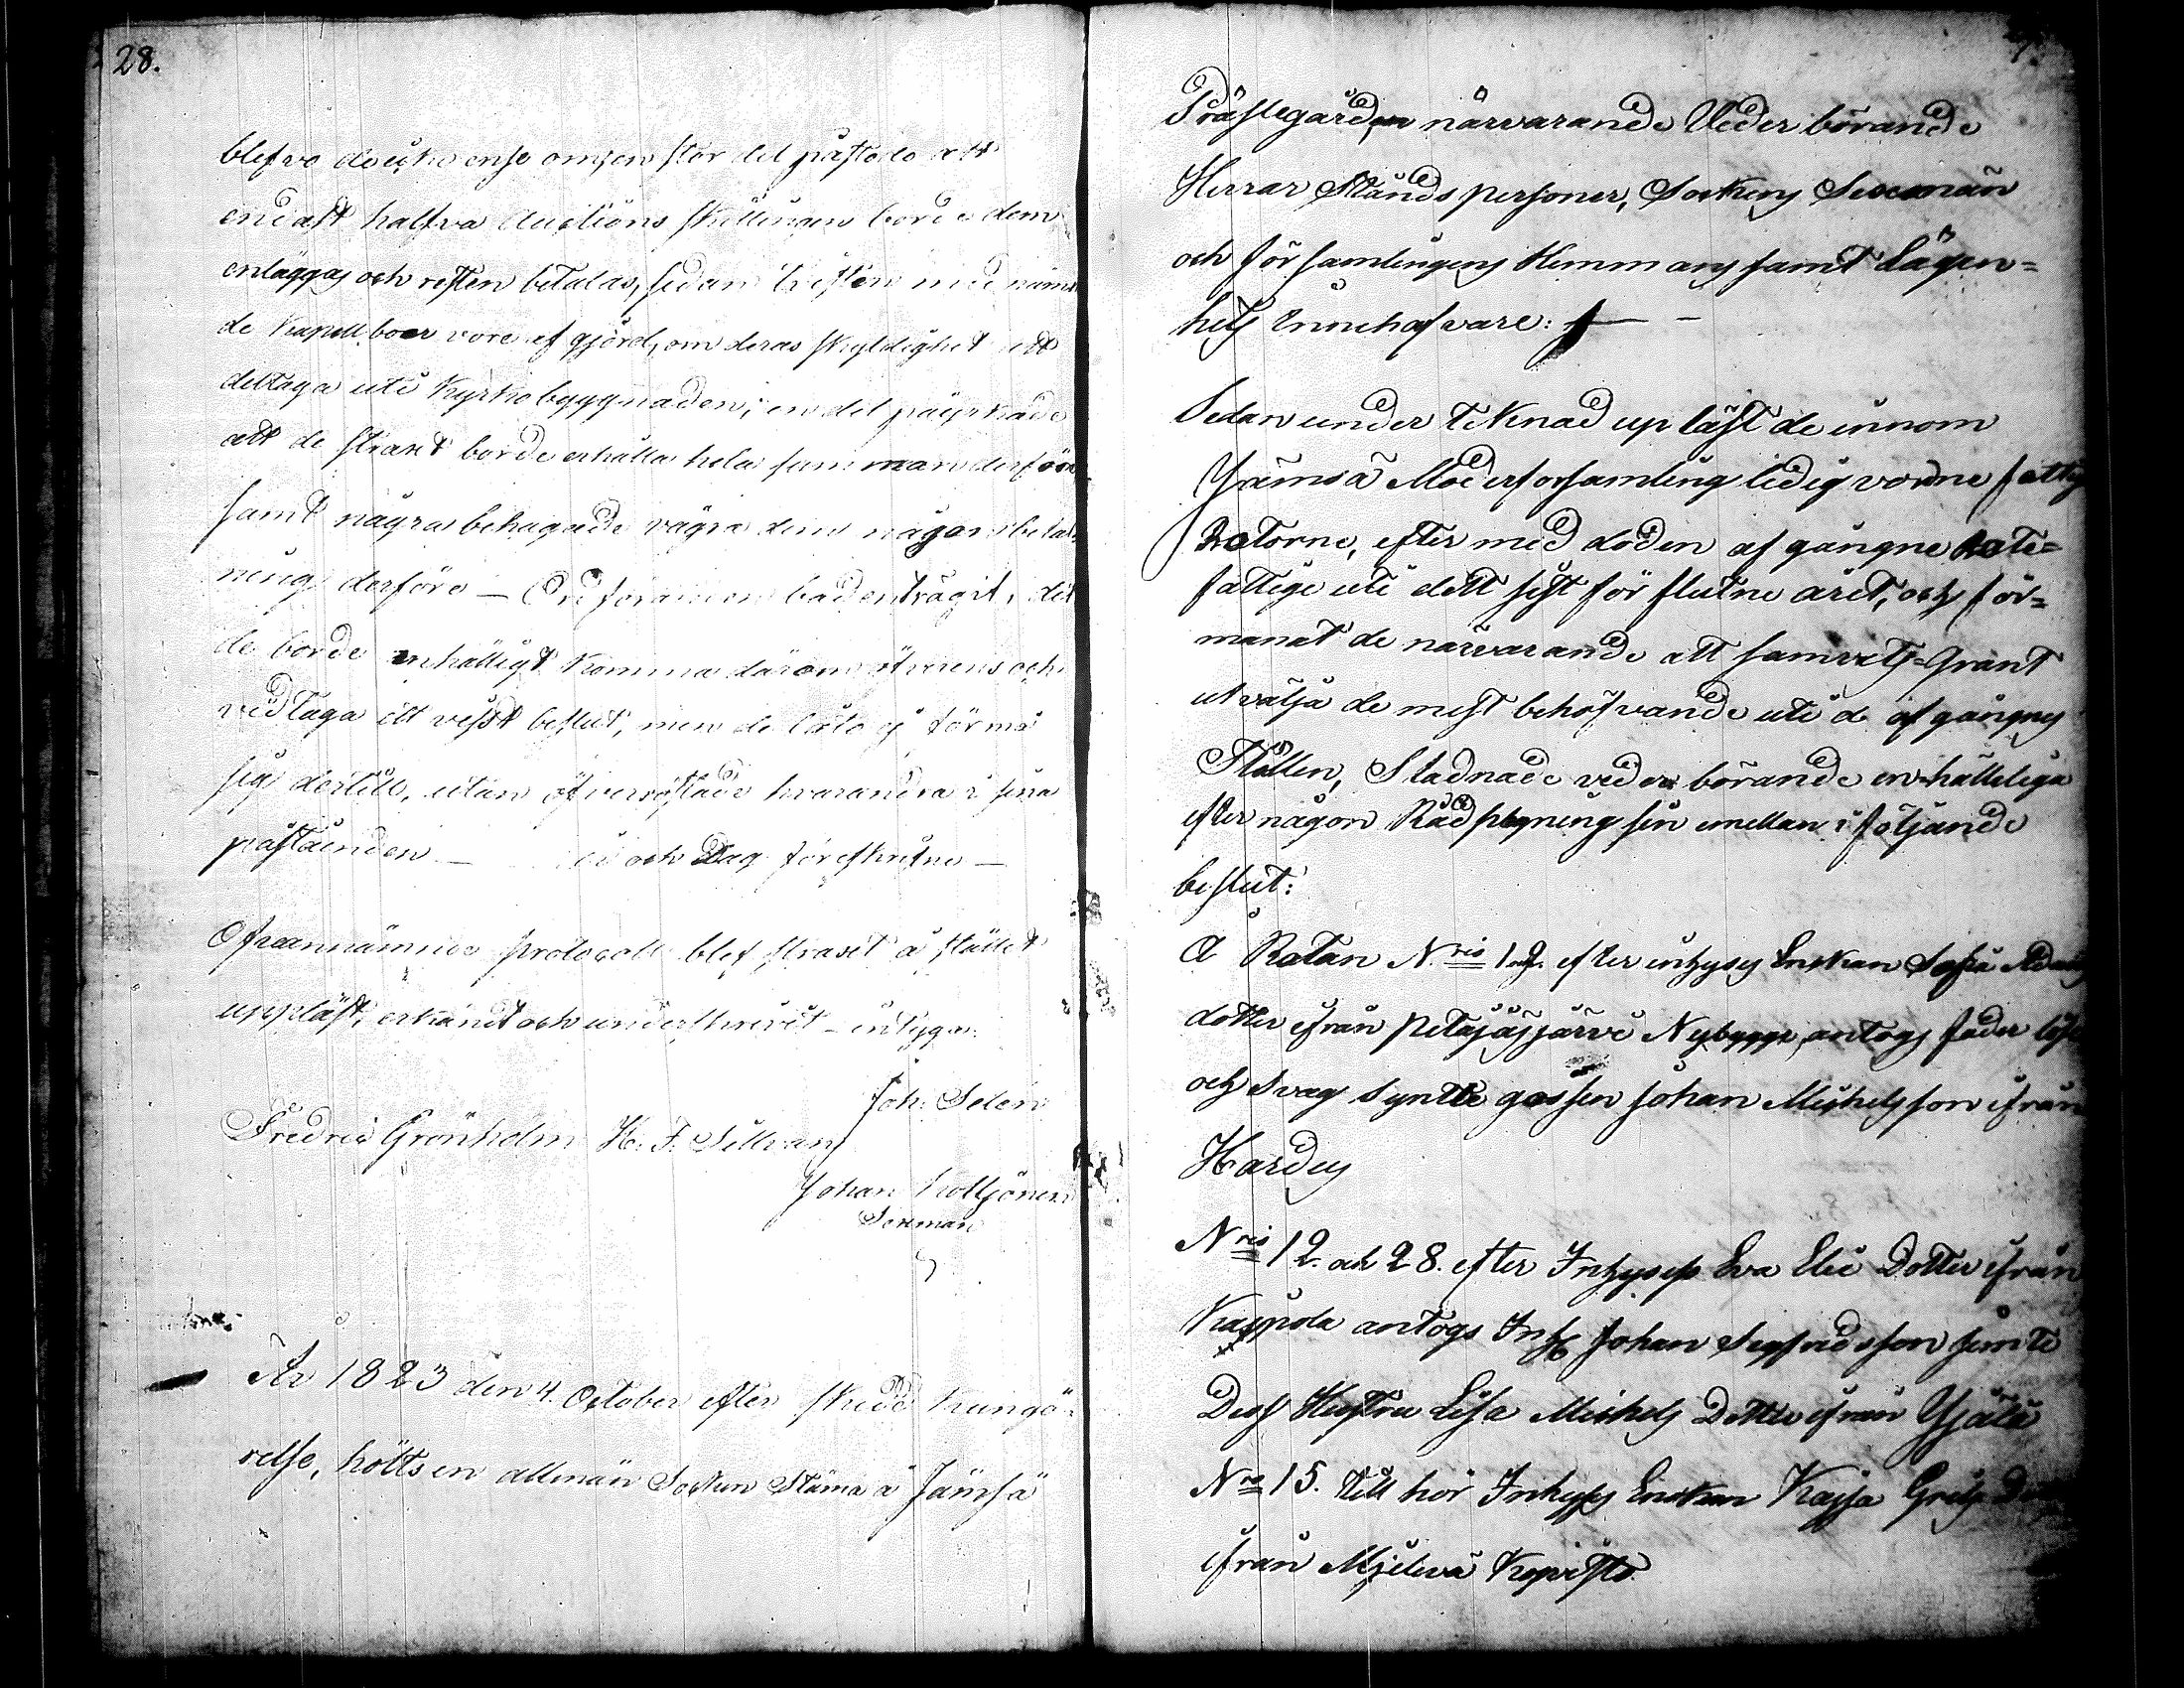 28.
blefvo de icke ense om, en stor del påstodo att
endast halfva Auctions skillingen borde dem
enläggas och resten betalas, sedan tvisten med nämn
de Kapell boer vore af gjord, om deras skyldighet att
deltaga uti Kyrkobyggnaden; en del påyrkade
att de straxt borde erhålla hela summan derföre
samt några behagade vägra dem någon betal
ning derföre — Ordföranden bad enträgit, det
de borde enhälligt komma därom öfverens och
vedtaga ett visst beslut, men de läto ej förmå
sig dertill, utan öfverröstade hvarandra i sina
påståenden — och Dag föreskrifne —
Ofvannämnde protocoll blef straxt å stället
uppläst, erkändt och underskrivit – intygar.
Joh: Selen
Fredric Grönholm H. F. Sillman
Johan
Sexman
År 1823 den 4. October efter skedd kungö-
relse, hölts en allmän Sockne Stämma å Jämsä
Prästegården närvarande Vederbörande
Herrar Stånds personer, Sockens Sexmän
och församlingens Hemmans samt Lägen=
hets Innehafvare: —
Sedan under teknad up läst de innom
Jämsä Moderforsamling ledig vordne fattig
Rotorne, efter med döden af gångne Rote=
fattige uti dett sist för flutne året, och för=
manat de närvarande att samvets-Grant
utvälja de mest behöfvande uti de af gångnes
Ställen, Stadnade veder börande en-hälleliga
efter någon Rådplägning sin emellan i följande
beslut:
A Rotan N:ris 1 och 9. efter inhyses Enkan Sofia Adams
dotter ifrån Petäjäsjärvi Nybygge, antogs fader löse
och svag synte gossen Johan Michelsson ifrån
Hardus
N:ris 12. och 28. efter Inhyses Eva Elie Dotter ifrån
Kaipola antogs Inh: Johan Sigfridsson jemte
Dess Hustru Lisa Michels Dotter ifrån
N:ro 15. till hör Inhyses Enkan Kajsa Grels Dotter
ifrån